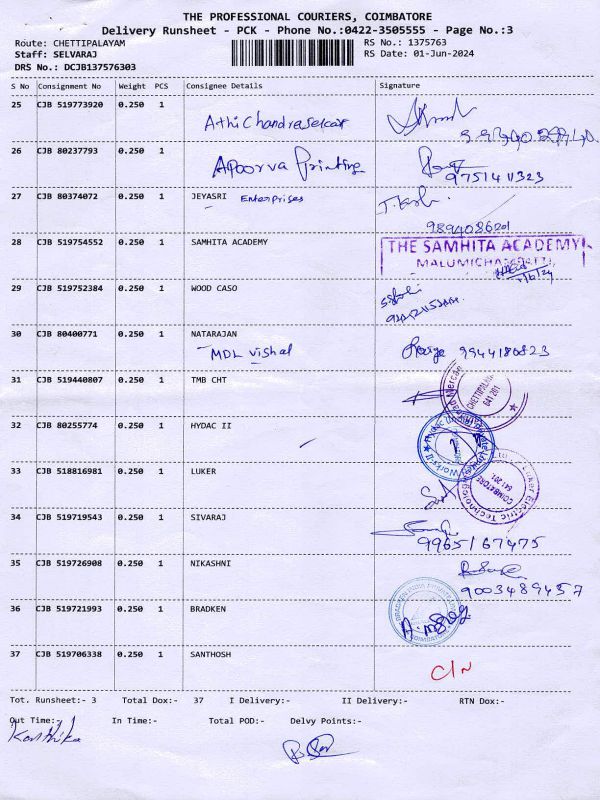 THE PROFESSIONAL COURIERS, COIMBATORE
Delivery Runsheet - PCK - Phone No.:0422-3505555 - Page No.:3
Route: CHETTIPALAYAM RS No.: 1375763
Staff: SELVARAJ RS Date: 01-Jun-2024
DRS No.: DCJB137576303
S No Consignment No Weight PCS Consignee Details Signature
25 CJB 519773920 0.250 1
Athi Chandrasekar
26 CJB 80237793 0.250 1
Apoorva Printing
9751411323
27 CJB 80374072 0.250 1 JEYASRI Enterprises
9894086201
28 CJB 519754552 0.250 1 SAMHITA ACADEMY
THE SAMHITA ACADEMY
29 CJB 519752384 0.250 1 WOOD CASO
30 CJB 80400771 0.250 1 NATARAJAN
MDL Vishal 9944186823
31 CJB 519440807 0.250 1 TMB CHT
CHETTIPALAYAM
641 201
32 CJB 80255774 0.250 1 HYDAC II
33 CJB 518816981 0.250 1 LUKER
COIMBATORE
641 201
34 CJB 519719543 0.250 1 SIVARAJ
9965167475
35 CJB 519726908 0.250 1 NIKASHNI
9003489457
36 CJB 519721993 0.250 1 BRADKEN
COIMBATORE
37 CJB 519706338 0.250 1 SANTHOSH
C/N
Tot. Runsheet:- 3 Total Dox:- 37 I Delivery:- II Delivery:- RTN Dox:-
Out Time:- In Time:- Total POD:- Delvy Points:-
Karthika